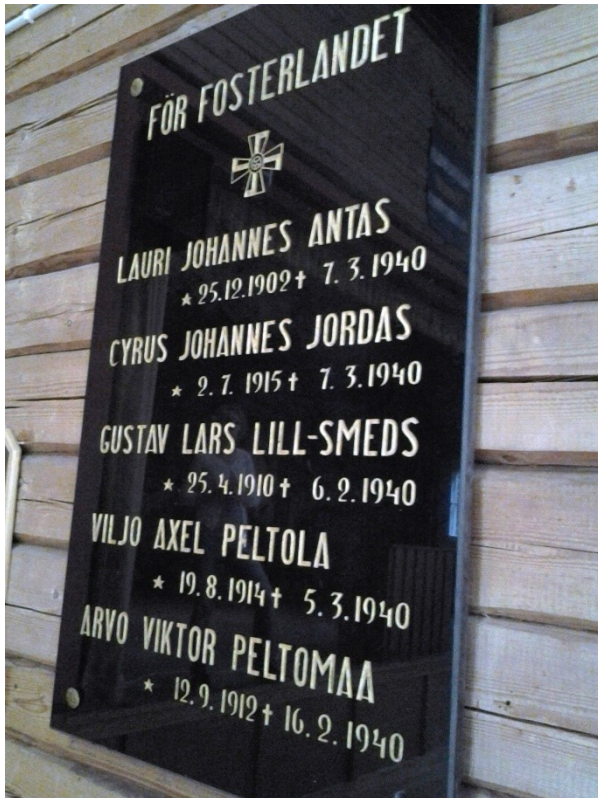 FÖR FOSTERLANDET
LAURI JOHANNES ANTAS
★ 25.12.1902 † 7.3.1940
CYRUS JOHANNES JORDAS
★ 2.7. 1915 † 7.3.1940
GUSTAV LARS LILL-SMEDS
★ 25.4.1910 † 6.2.1940
VILJO AXEL PELTOLA
★ 19.8.1914 † 5.3.1940
ARVO VIKTOR PELTOMAA
★ 12.9.1912 † 16.2.1940